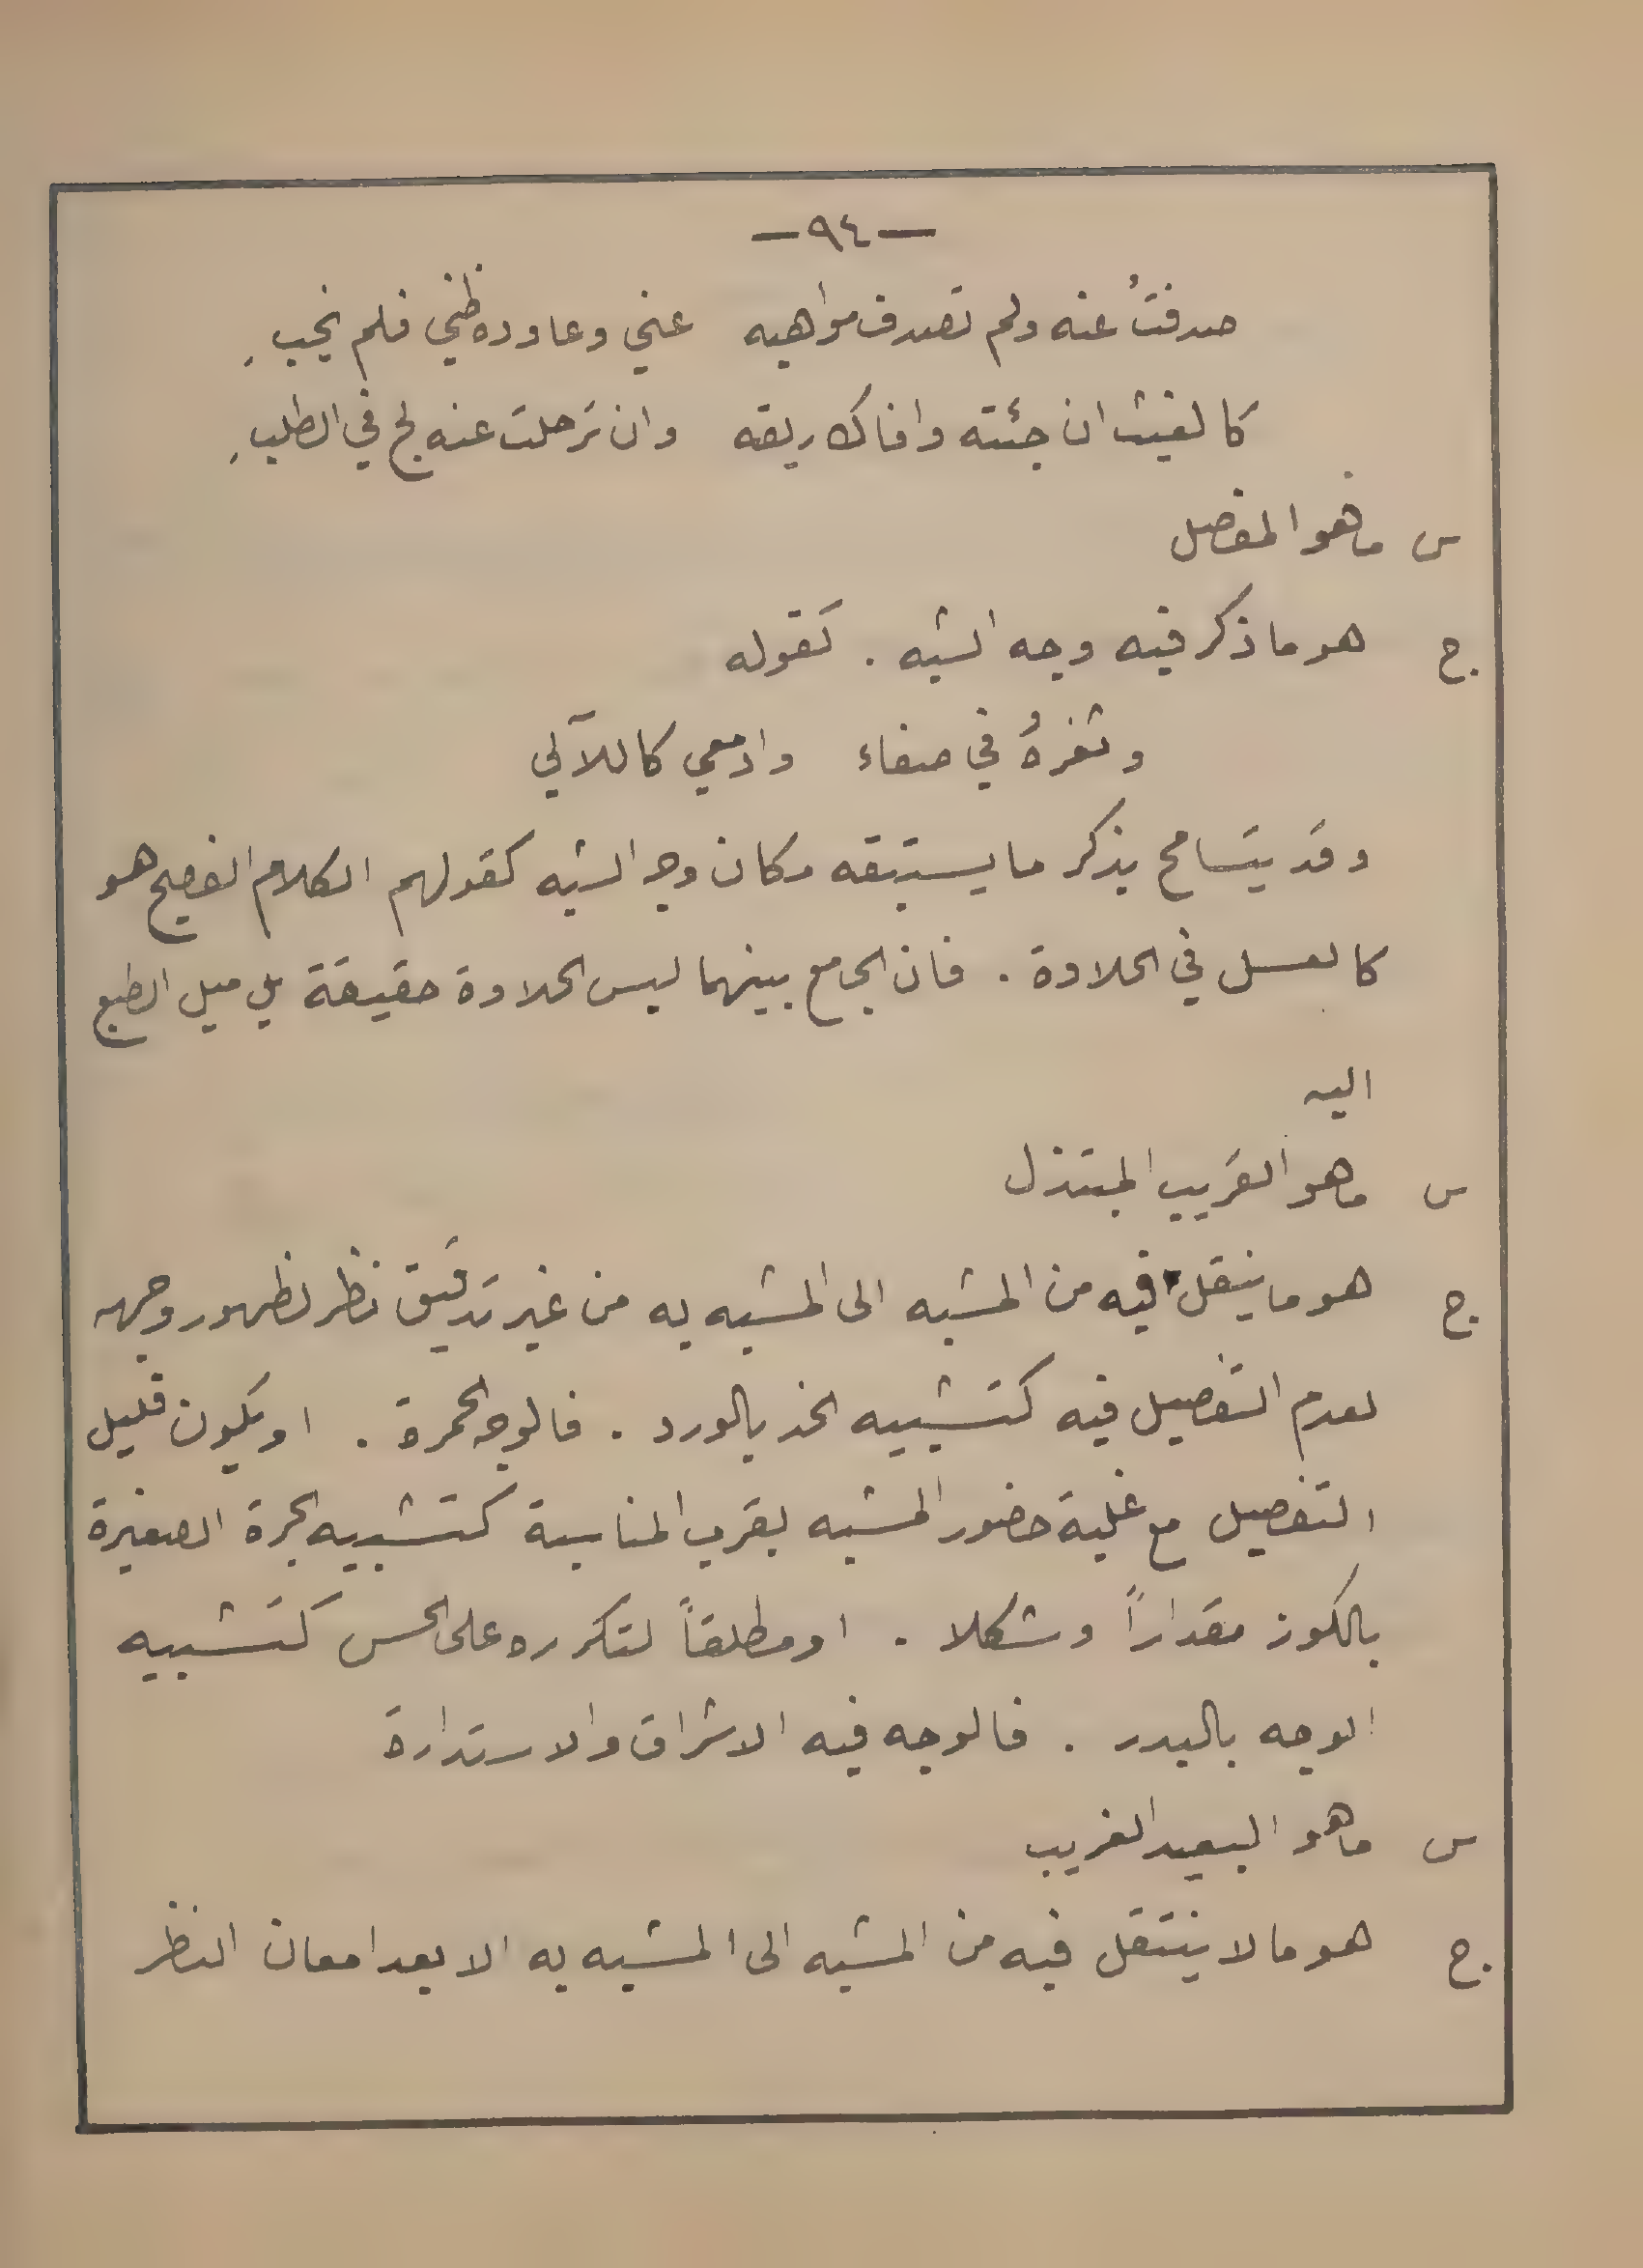 —٩٤—
صدفتُ عنه ولم تصدف مواهبه عني وعاوده ظني فلم يخبِ
كالغيث ان جئته وافاك ريقه وان ترحلت عنه لج في الطلبِ
س ما هو المفصل
ج. هو ما ذكر فيه وجه الشبه . كقوله
وثغرهُ في صفاء وادمعي كاللآلي
وقد يتسامح بذكر ما يستتبعه مكان وجه الشبه كقولهم الكلام الفصيح هو
كالعسل في الحلاوة . فان الجامع بينهما ليس الحلاوة حقيقة بل ميل الطبع
اليه
س ما هو القريب المبتذل
ج. هو ما ينتقل فيه من المشبه الى المشبه به من غير تدقيق نظر لظهور وجهه
لعدم التفصيل فيه كتشبيه الخد بالورد . فالوجه الحمرة . او يكون قليل
التفصيل مع غلبة حضور المشبه بقرب المناسبة كتشبيه الجرة الصغيرة
بالكوز مقداراً وشكلا . او مطلقاً لتكرره على الحس كتشبيه
الوجه بالبدر . فالوجه فيه الاشراق والاستدارة
س ما هو البعيد الغريب
ج. هو ما لا ينتقل فيه من المشبه الى المشبه به الا بعد امعان النظر